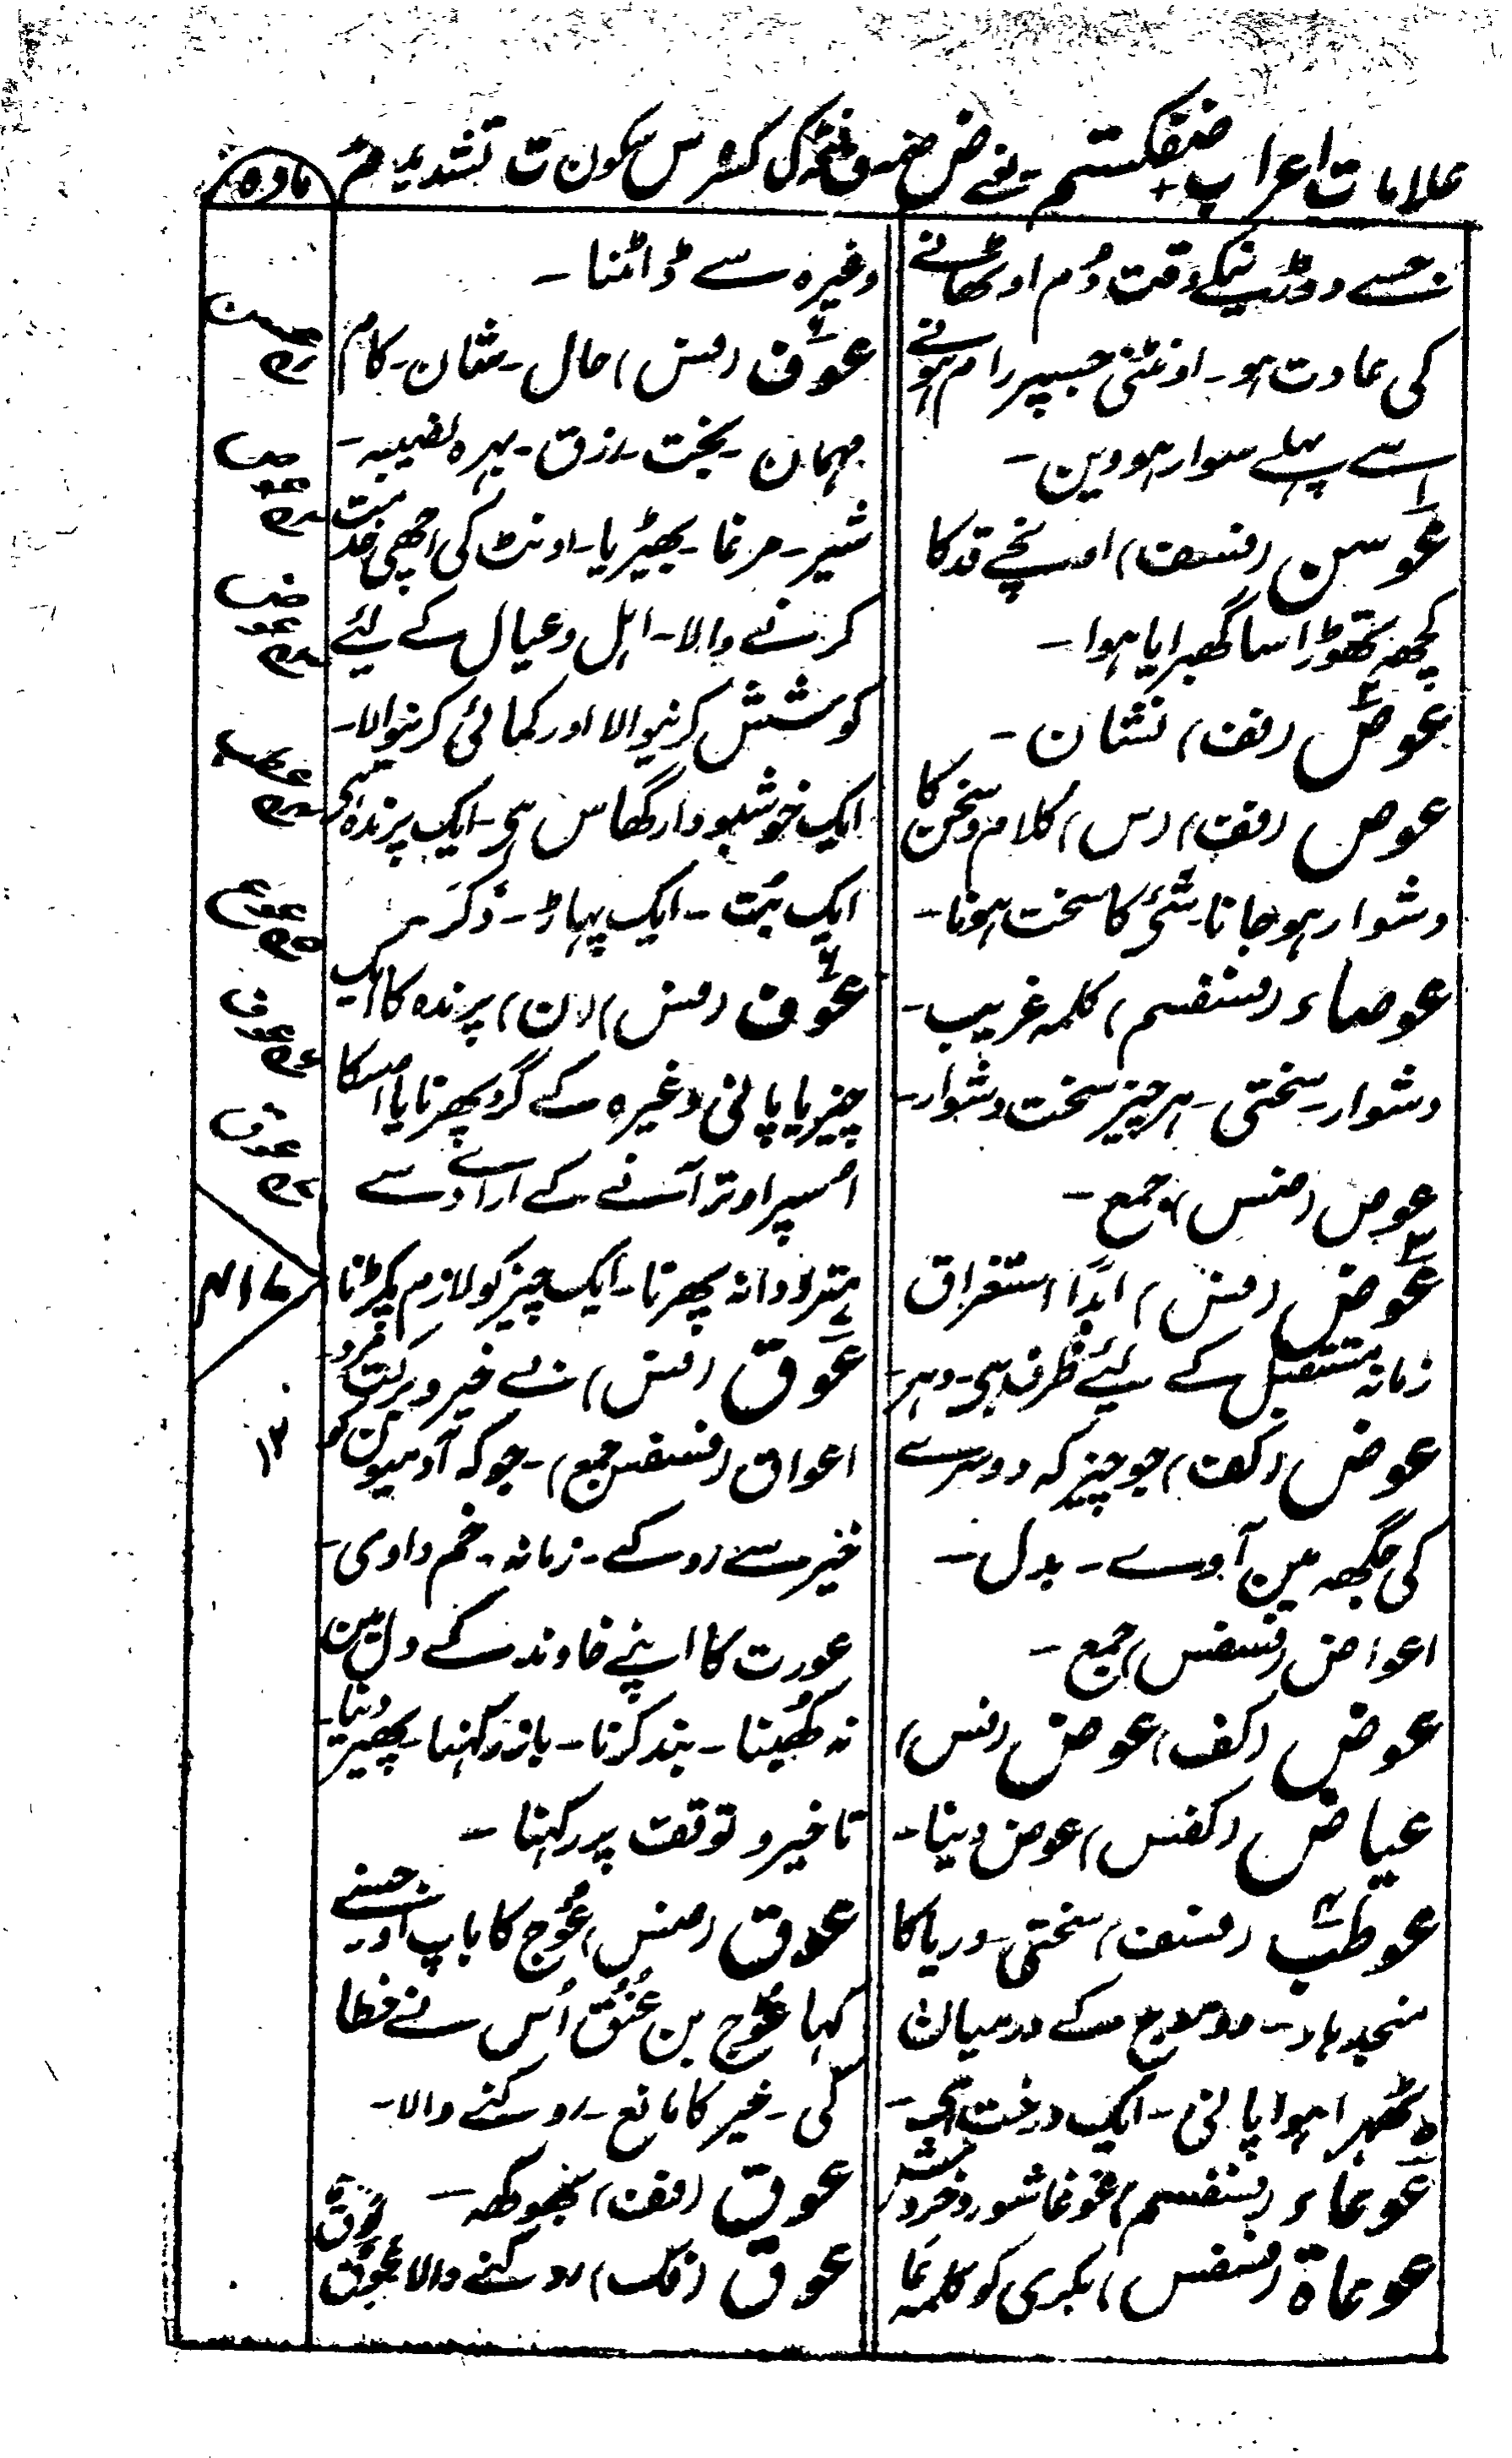 علامات اعراب ضفکستم یعنے ض ضمہ ف فتحہ ک کسرہ س سکون ت تشدید م مد
مادہ
جسے دوڑنیکے وقت دُم اوٹھانے
کی عادت ہو۔ اونٹنی جسپر رام ہونے
سے پہلے سوار ہووین۔
عوسن (فسفت) اونچے قد کا
کچھہ تھوڑا سا گھبرایا ہوا۔
عوص (فت) نشان۔
عوص (فت) (س) کلام و سخن کا
دشوار ہو جانا۔ شئ کا سخت ہونا۔
عوصاء (فسفسم) کلمہ غریب۔
دشوار۔ سختی۔ ہر چیز سخت دشوار۔
عوص (ضس) جمع۔
عوض (فس) ابدًا استغراق
زمانہ مستقبل کے لیئے ظرف ہی۔ دہر۔
عوض (کفت) جو چیز کہ دوسرے
کی جگھہ مین آوے۔ بدل۔
اعواض (فسفس) جمع۔
عوض (کف) عوض (فس)
عیاض (کفس) عوض دینا۔
عوطب (فسفت) سختی۔ دریا کا
منجدہار۔ دو موج کے درمیان
ٹھہرا ہوا پانی۔ ایک درخت ہی۔
عوعاء (فسفسم) غوغا شور و خروش
عوعاۃ (فسفس) بکری کو کلمہ عَا
وغیرہ سے ڈانٹنا۔
عوف (فس) حال۔ شان۔ کام
مہمان۔ بخت۔ رزق۔ بہرہ نصیبہ۔
شیر۔ مرغا۔ بھیڑیا۔ اونٹ کی اچھی خدمت
کرنے والا۔ اہل وعیال کے لیئے
کوشش کرنیوالا اور کمائی کرنیوالا۔
ایک خوشبودار گھاس ہی۔ ایک پرندہ ہی
ایک بُت۔ ایک پہاڑ۔ ذَکَر۔
عوف (فس) (ن) پرندہ کا ایک
چیز یا پانی وغیرہ کے گرد پھرنا یا اسکا
اسپر اوتر آنے کے ارادے سے
مترددانہ پھرنا۔ ایک چیز کو لازم پکڑنا
عوق (فس) بے خیر و برکت مرد۔
اعواق (فسفس جمع)۔ جو کہ آدمیون کو
خیر سے روکے۔ زمانہ۔ خم وادی۔
عورت کا اپنے خاوند کے دل مین
نہ کُھبنا۔ بند کرنا۔ باز رکہنا۔ پھیر دینا۔
تاخیر و توقف پر رکہنا۔
عوق (ضس) عُوج کا باپ اور جسنے
کہا عُوج بن عُنُق اُس نے خطا
کی۔ خیر کا مانع۔ روکنے والا۔
عوق (فت) بھوکھہ۔
عوق (فک) روکنے والا